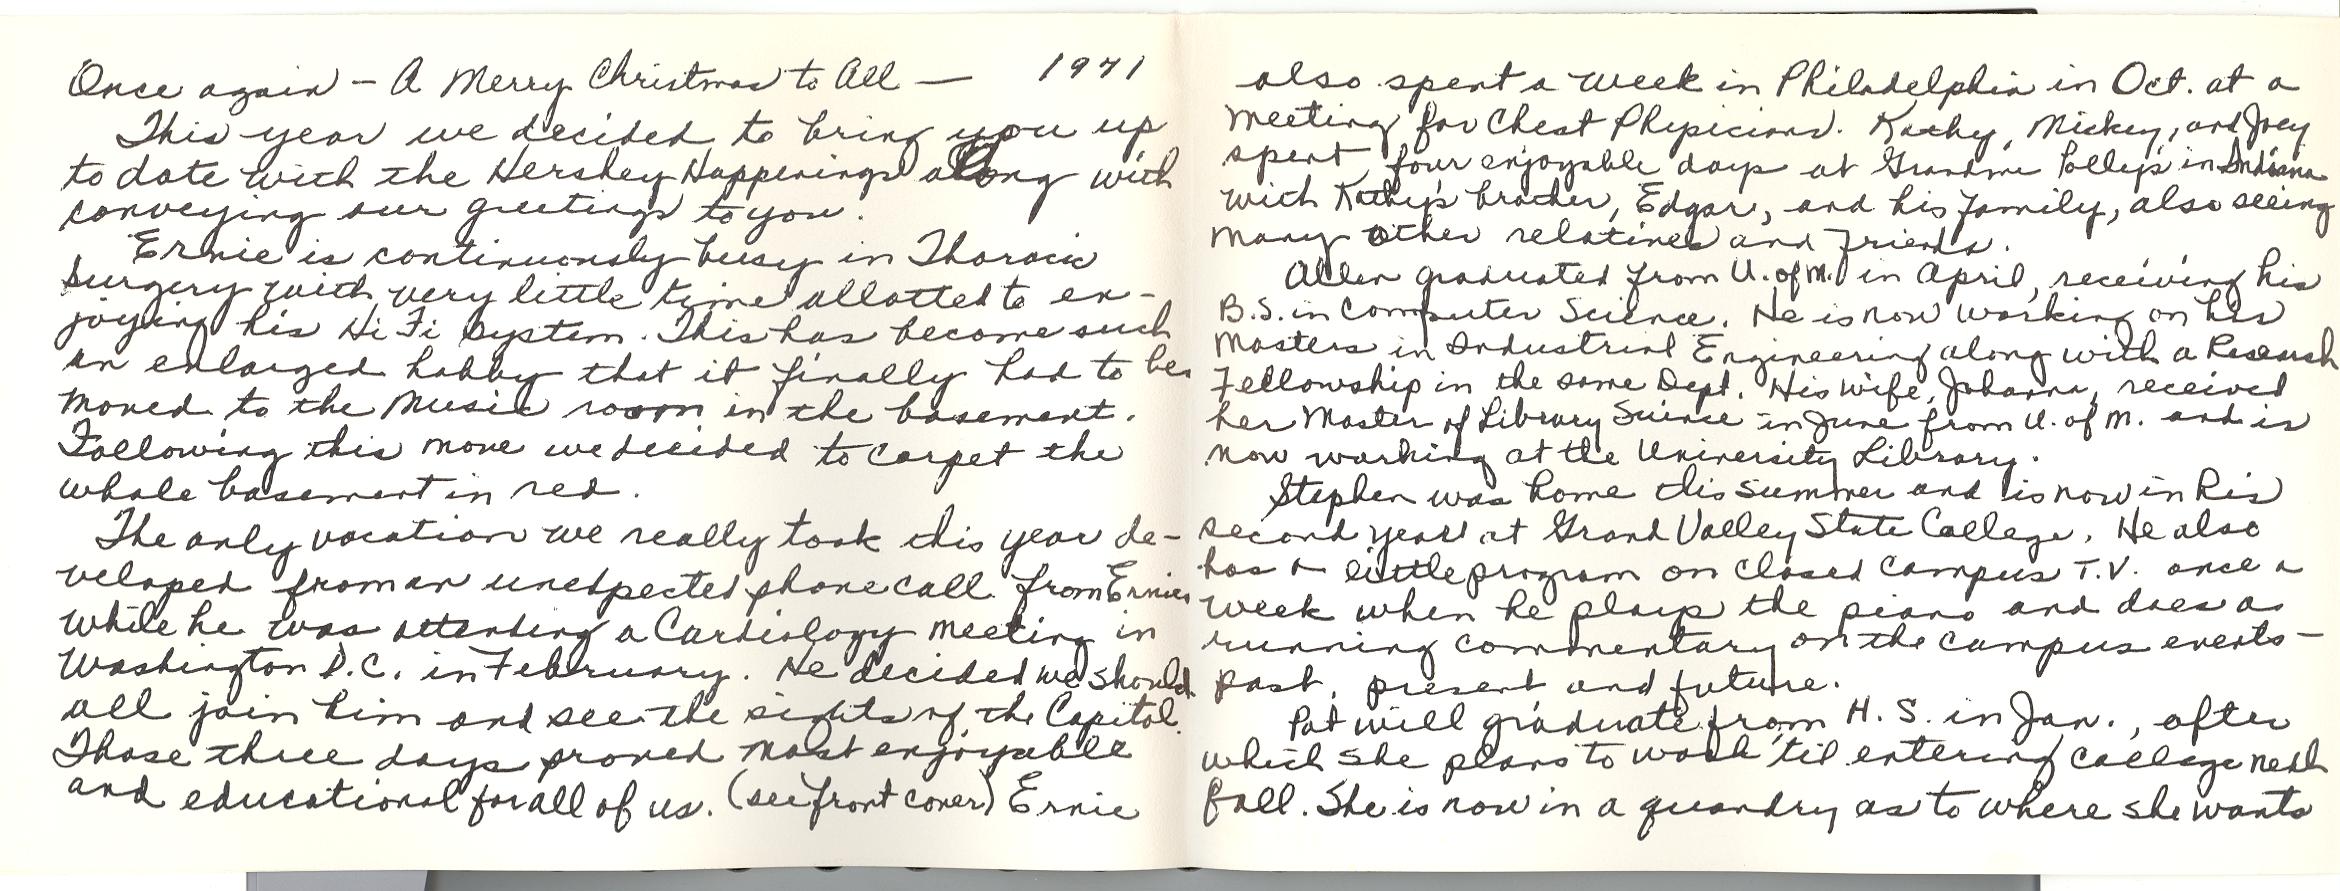 Once again - A Merry Christmas to All - 1971
This year we decided to bring you up
to date with the Hershey Happenings along with
conveying our greetings to you.
Ernie is continuously busy in Thoracic
Surgery with very little time allotted to en-
joying his Hi Fi system. This has become such
an enlarged hobby that it finally had to be
moved to the Music room in the basement.
Following this move we decided to carpet the
whole basement in red.
The only vacation we really took this year de-
veloped from an unexpected phone call from Ernie
while he was attending a Cardiology meeting in
Washington D.C. in February. He decided we should
all join him and see the sights of the Capitol.
Those three days proved most enjoyable
and educational for all of us. (see front cover) Ernie
also spent a week in Philadelphia in Oct. at a
meeting for Chest Physicians. Kathy, Mickey, and Joey
spent four enjoyable days at Grandma Polley's in Indiana
with Kathy's brother, Edgar, and his family, also seeing
many other relatives and friends.
Allen graduated from U. of M. in April, receiving his
B.S. in Computer Science. He is now working on his
Masters in Industrial Engineering along with a Research
Fellowship in the same Dept. His wife, Johanna, received
her Master of Library Science in June from U. of M. and is
now working at the University Library.
Stephen was home this summer and is now in his
second year at Grand Valley State College. He also
has a little program on closed campus T.V. once a
week when he plays the piano and does a
running commentary on the campus events -
past, present and future.
Pat will graduate from H. S. in Jan., after
which she plans to work 'til entering college next
fall. She is now in a quandry as to where she wants